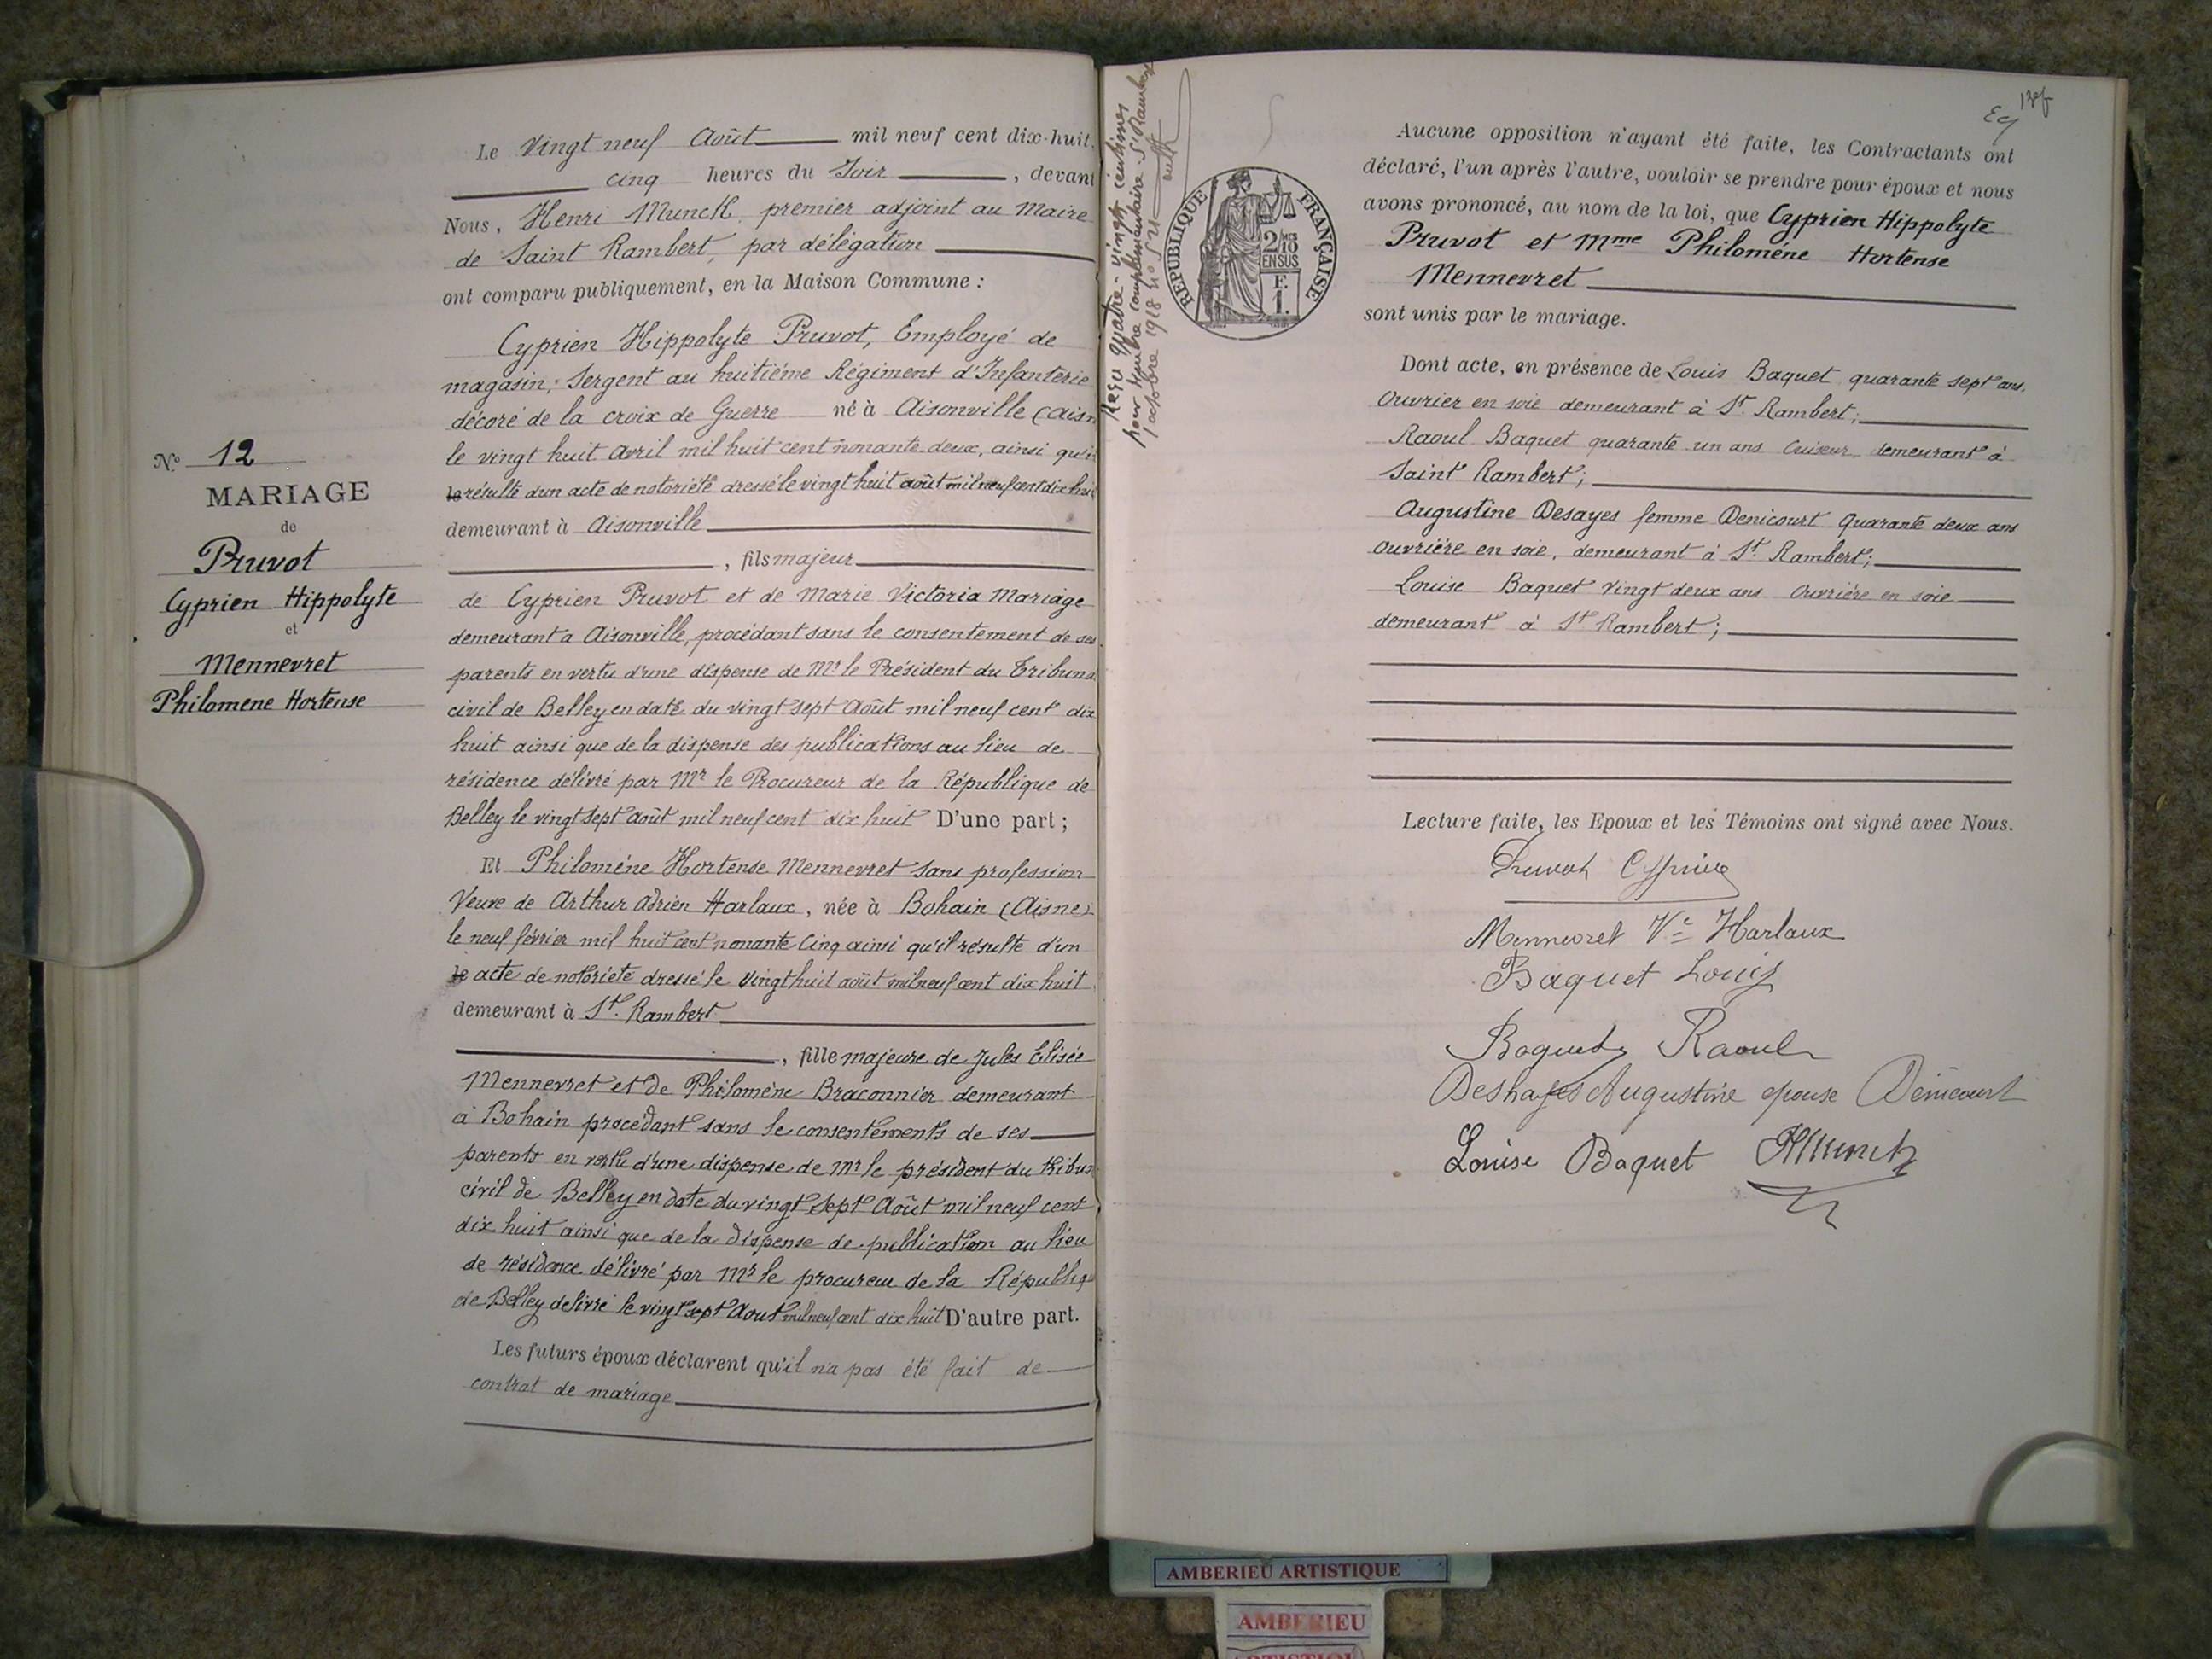 Le Vingt neuf Août mil neuf cent dix-huit,
cinq heures du Soir, devant
Nous, Henri Munck, premier adjoint au Maire
de Saint Rambert, par délégation
ont comparu publiquement, en la Maison Commune :
Cyprien Hippolyte Pruvot, Employé de
magasin, Sergent au huitième Régiment d'Infanterie
décoré de la croix de Guerre né à Aisonville (Aisn
le vingt huit Avril mil huit cent nonante deux, ainsi qu'il
le résulte d'un acte de notoriété dressé le vingt huit août mil neuf cent dix huit
demeurant à Aisonville
, fils majeur
de Cyprien Pruvot et de Marie Victoria Mariage
demeurant à Aisonville, procédant sans le consentement de ses
parents en vertu d'une dispense de Mr le Président du Tribunal
civil de Belley en date du vingt sept Août mil neuf cent dix
huit ainsi que de la dispense des publications au lieu de
résidence délivré par Mr le Procureur de la République de
Belley le vingt sept août mil neuf cent dix huit D'une part ;
Et Philomène Hortense Mennevret sans profession
Veuve de Arthur Adrien Harlaux, née à Bohain (Aisne)
le neuf février mil huit cent nonante cinq ainsi qu'il résulte d'un
le acte de notoriété dressé le vingt huit août mil neuf cent dix huit
demeurant à St. Rambert
, fille majeure de Jules Elisée
Mennevret et de Philomène Braconnier demeurant
à Bohain procédant sans le consentements de ses
parents en vertu d'une dispense de Mr le président du tribun
civil de Belley en date du vingt sept Août mil neuf cent
dix huit ainsi que de la dispense de publication au lieu
de résidence délivré par Mr le procureur de la Républiq
de Belley delivré le vingt sept Aout mil neuf cent dix huit D'autre part.
Les futurs époux déclarent qu'il n'a pas été fait de
contrat de mariage
No 12
MARIAGE
de
Pruvot
Cyprien Hippolyte
et
Mennevret
Philomene Hortense
Reçu quatre-vingt centimes
pour timbre complémentaire St Rambert
1 octobre 1918
RÉPUBLIQUE FRANÇAISE
2/10
EN SUS
F.
1.
Aucune opposition n'ayant été faite, les Contractants ont
déclaré, l'un après l'autre, vouloir se prendre pour époux et nous
avons prononcé, au nom de la loi, que Cyprien Hippolyte
Pruvot et Mme Philoméne Hortense
Mennevret
sont unis par le mariage.
Dont acte, en présence de Louis Baquet quarante sept ans,
Ouvrier en soie demeurant à St. Rambert;
Raoul Baquet quarante un ans Cuiseur demeurant à
Saint Rambert;
Augustine Desayes femme Denicourt Quarante deux ans
Ouvrière en soie, demeurant à St Rambert;
Louise Baquet vingt deux ans Ouvrière en soie
demeurant à St Rambert;
Lecture faite, les Epoux et les Témoins ont signé avec Nous.
Pruvot Cyprien
Mennevret Ve Harlaux
Baquet Louis
Baquet Raoul
Deshayes Augustine epouse Dénicourt
Louise Baquet HMunck
AMBERIEU ARTISTIQUE
AMBERIEU
ARTISTIQU